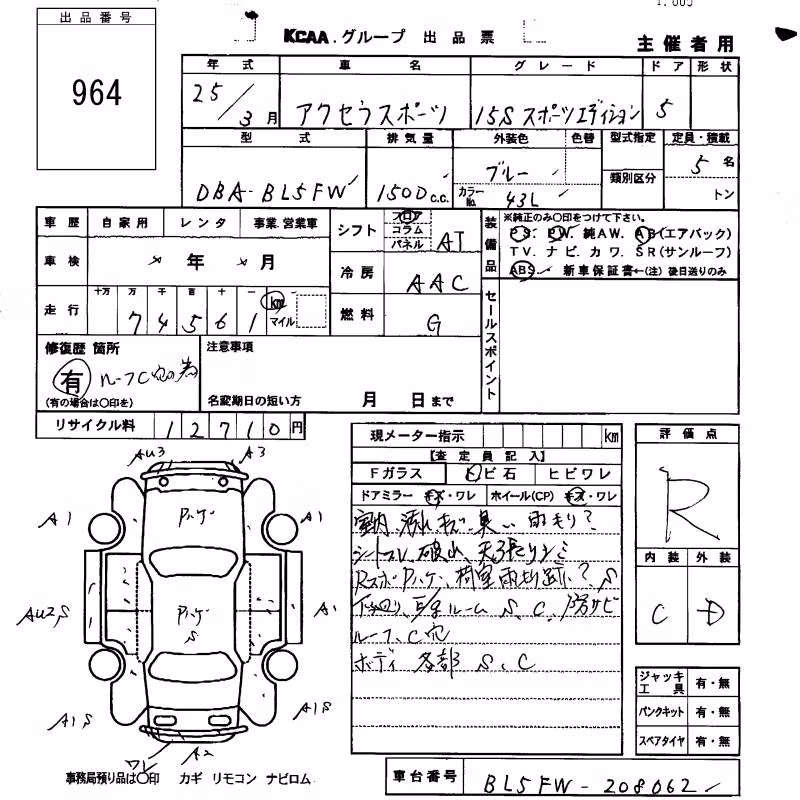 出品番号
964
KCAA.グループ 出品票
主催者用
年式 車名 グレード ドア 形状
25/3月 アクセラスポーツ 15S スポーツエディション 5
型式 排気量 外装色 色替 型式指定 定員・積載
DBA-BL5FW 1500c.c. ブルー 5名
カラーNo. 43L 類別区分 トン
車歴 自家用 レンタ 事業.営業車
シフト フロア コラム パネル AT
装備品
※純正のみ○印をつけて下さい。
PS. PW. 純AW. AB(エアバック)
TV. ナビ. カワ. SR(サンルーフ)
ABS 新車保証書←(注)後日送りのみ
車検 年 月
冷房 AAC
走行 十万 万 千 百 十 一 km マイル
74561
燃料 G
セールスポイント
修復歴 箇所
有
(有の場合は○印を)
注意事項
名変期日の短い方 月 日まで
リサイクル料 12710円
現メーター指示 km
【査定員記入】
Fガラス トビ石 ヒビワレ
ドアミラー キズ・ワレ ホイール(CP) キズ・ワレ
室内 汚れ、キズ、臭い 雨モリ?
シートスレ、破れ、天張りシミ
荷室雨漏り跡? S
ルーム S、C、
ルーフ、C穴
ボディ 各部 S、C
評価点
R
内装 外装
C D
AU3 A3
A1 A1
AU2S A1
S
A1S A1S
ワレ A2
ジャッキ工具 有・無
パンクキット 有・無
スペアタイヤ 有・無
事務局預り品は○印 カギ リモコン ナビロム
車台番号 BL5FW-208062